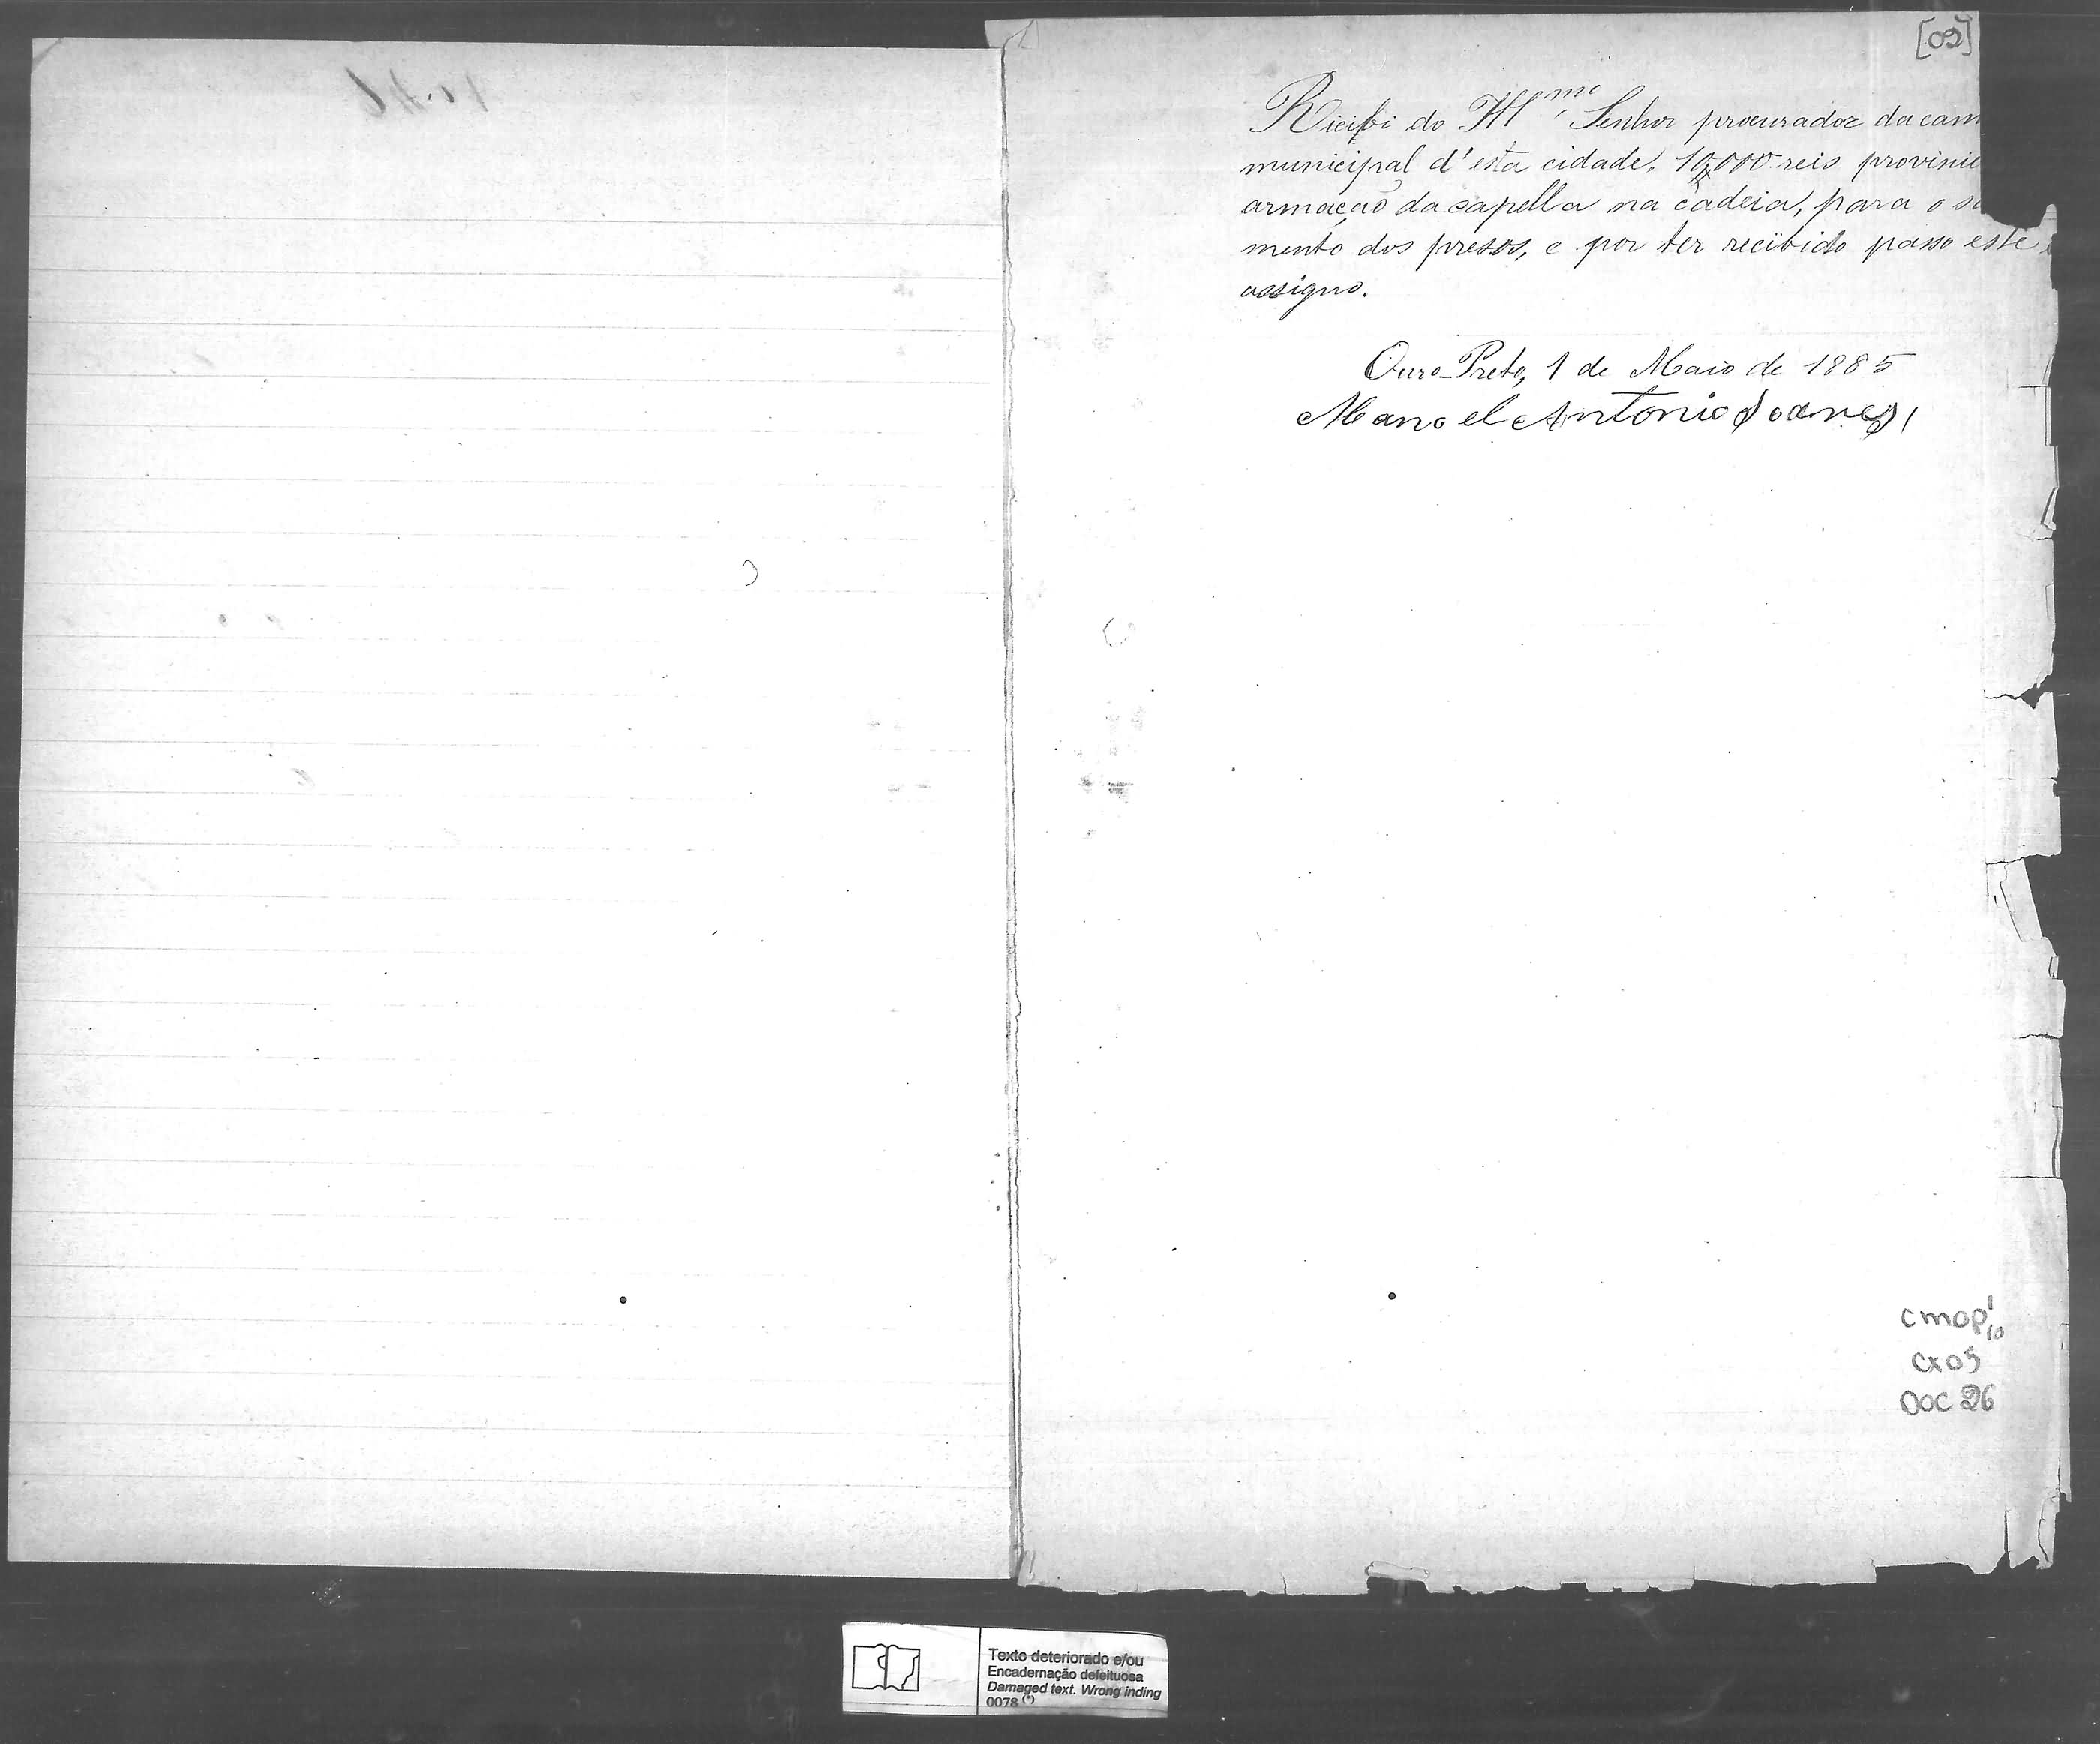 [02]
Recibi do Illmo Senhor procurador da cam
municipal d'esta cidade, 10,000 reis provinie
armação da capella na cadeia, para o sa
mento dos presos, e por ter recibido passo este e
assigno.
Ouro-Preto, 1 de Maio de 1885
Manoel Antonio Soares
CMOP 1/10
CX 05
DOC 26
Texto deteriorado e/ou
Encadernação defeituosa
Damaged text. Wrong inding
0078 (*)